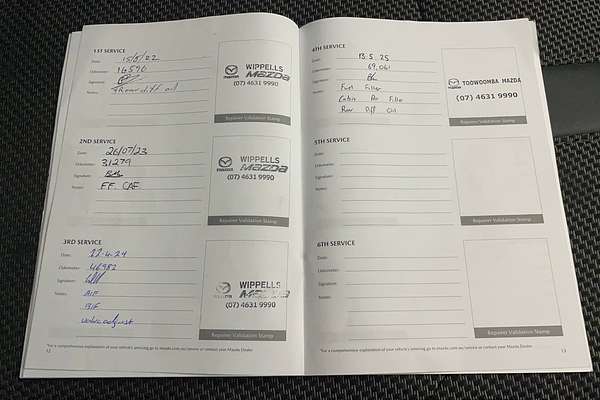 1ST SERVICE
Date: 15/8/22
Odometer: 16590
Signature:
Notes: diff oil
mazda
WIPPELLS
mazda
(07) 4631 9990
Repairer Validation Stamp
2ND SERVICE
Date: 26/07/23
Odometer: 31279
Signature:
Notes: F.F. CAF.
mazda
WIPPELLS
mazda
(07) 4631 9990
Repairer Validation Stamp
3RD SERVICE
Date: 22-4-24
Odometer: 46982
Signature:
Notes:
WIPPELLS
mazda
(07) 4631 9990
Repairer Validation Stamp
*For a comprehensive explanation of your vehicle's servicing go to mazda.com.au/service or contact your Mazda Dealer
12
4TH SERVICE
Date: 13.5.25
Odometer: 69,061
Signature:
Notes: Fuel Filter
Cabin Air Filter
Rear Diff Oil
mazda
TOOWOOMBA MAZDA
(07) 4631 9990
Repairer Validation Stamp
5TH SERVICE
Date:
Odometer:
Signature:
Notes:
Repairer Validation Stamp
6TH SERVICE
Date:
Odometer:
Signature:
Notes:
Repairer Validation Stamp
*For a comprehensive explanation of your vehicle's servicing go to mazda.com.au/service or contact your Mazda Dealer
13